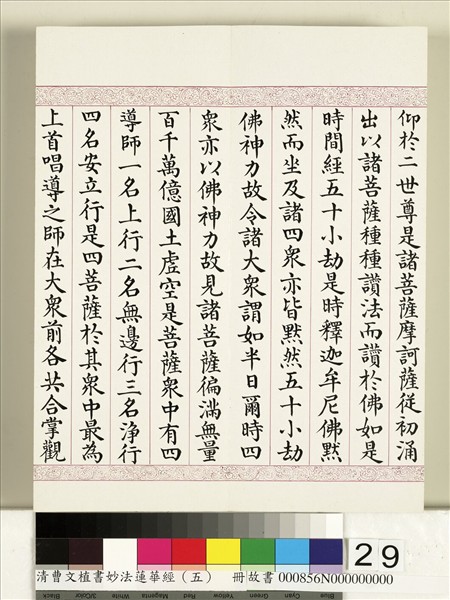 仰於二世尊是諸菩薩摩訶薩従初涌
出以諸菩薩種種讚法而讚於佛如是
時間經五十小劫是時釋迦牟尼佛默
然而坐及諸四衆亦皆默然五十小劫
佛神力故令諸大衆謂如半日爾時四
衆亦以佛神力故見諸菩薩徧滿無量
百千萬億國土虛空是菩薩衆中有四
導師一名上行二名無邊行三名淨行
四名安立行是四菩薩於其衆中最為
上首唱導之師在大衆前各共合掌觀
29
清曹文植書妙法蓮華經（五） 冊故書 000856N000000000
Black 3/Color White Magenta Red Yellow Green Cyan Blue